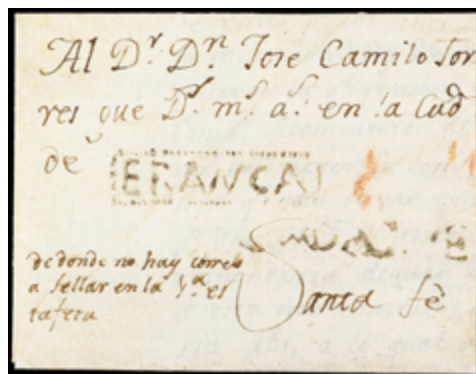 Al Dr. Dn Jose Camilo Tor
res que Ds. ms. as. en la Cud
de
FRANCA
Santa fè
de donde no hay correo
a sellar en la Ya es
tafeta